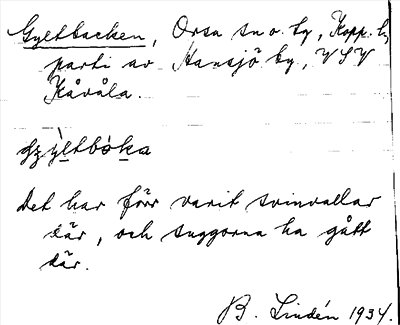 Gyltbacken, Orsa sn o. tg, Kopp. l.,
parti av Hansjö by, VSV
Kåvåla.
gyltbóka
Det har förr varit svinvallar
där, och suggorna ha gått
där.
B. Lindén 1934.